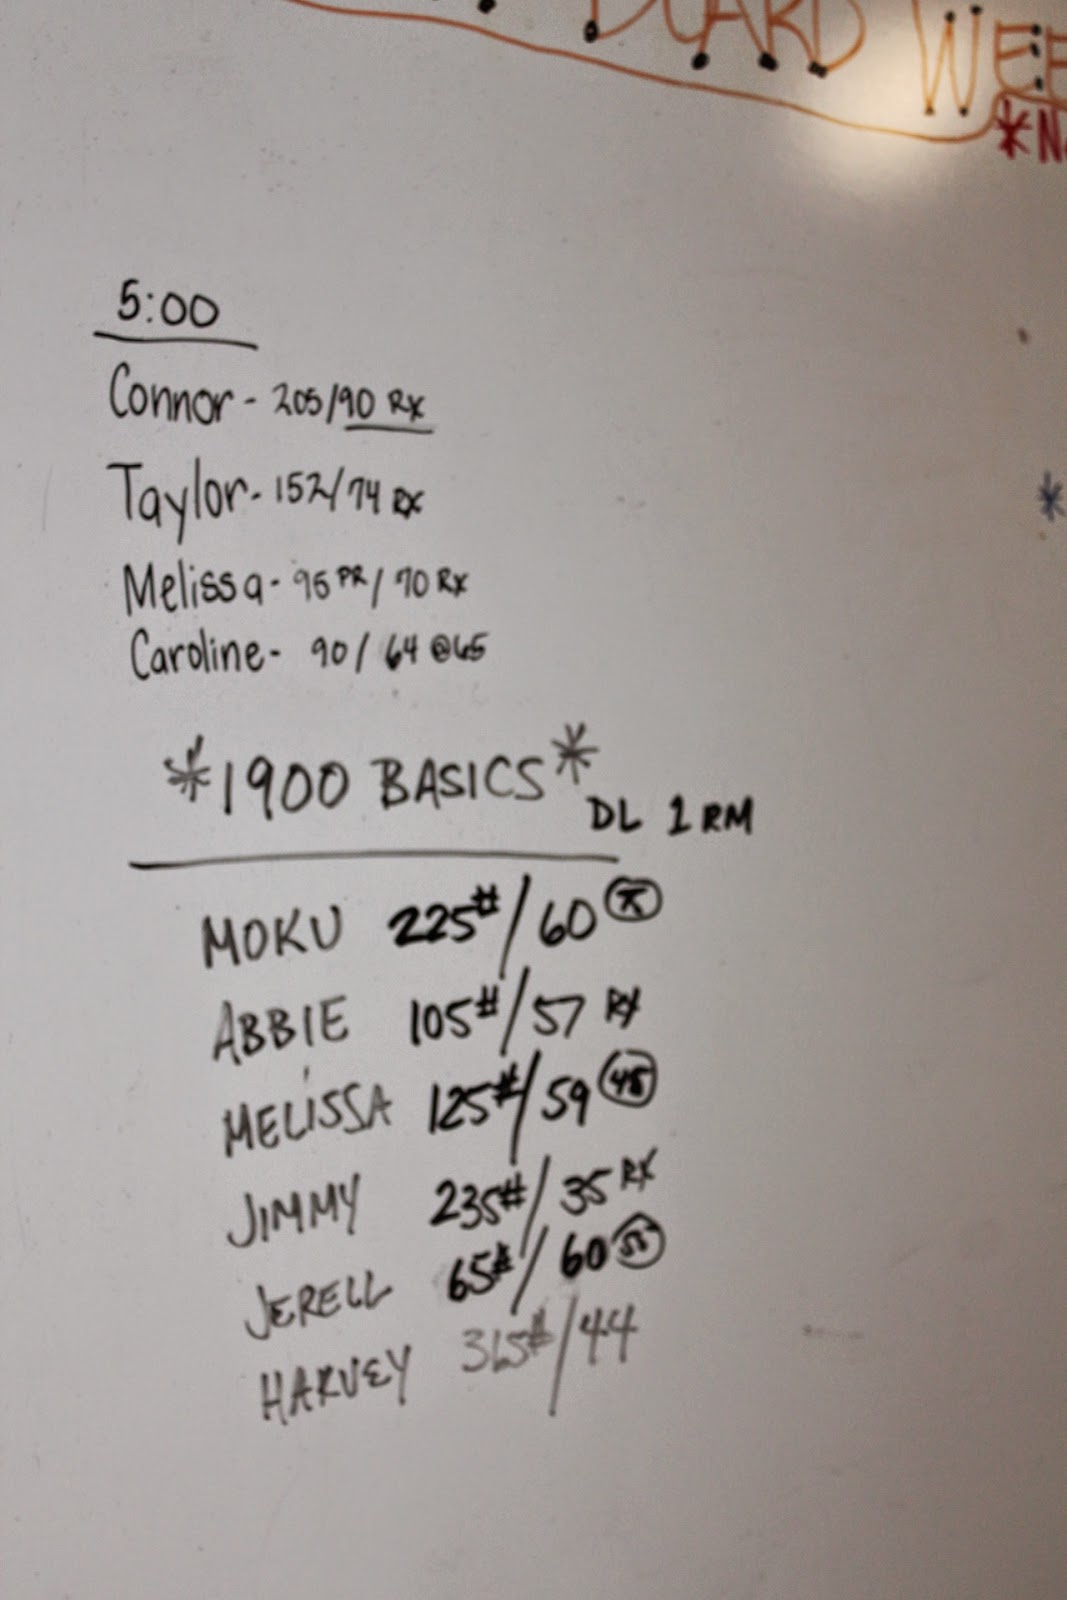 BOARD WEE
*N
5:00
Connor - 205/90 RX
Taylor - 152/74 RX
Melissa - 95 PR / 70 RX
Caroline - 90 / 64 @65
*1900 BASICS*
DL 1 RM
MOKU 225# / 60
ABBIE 105# / 57 RX
MELISSA 125# / 59 45
JIMMY 235# / 35 RX
JERELL 65# / 60 55
HARVEY 365# / 44
*